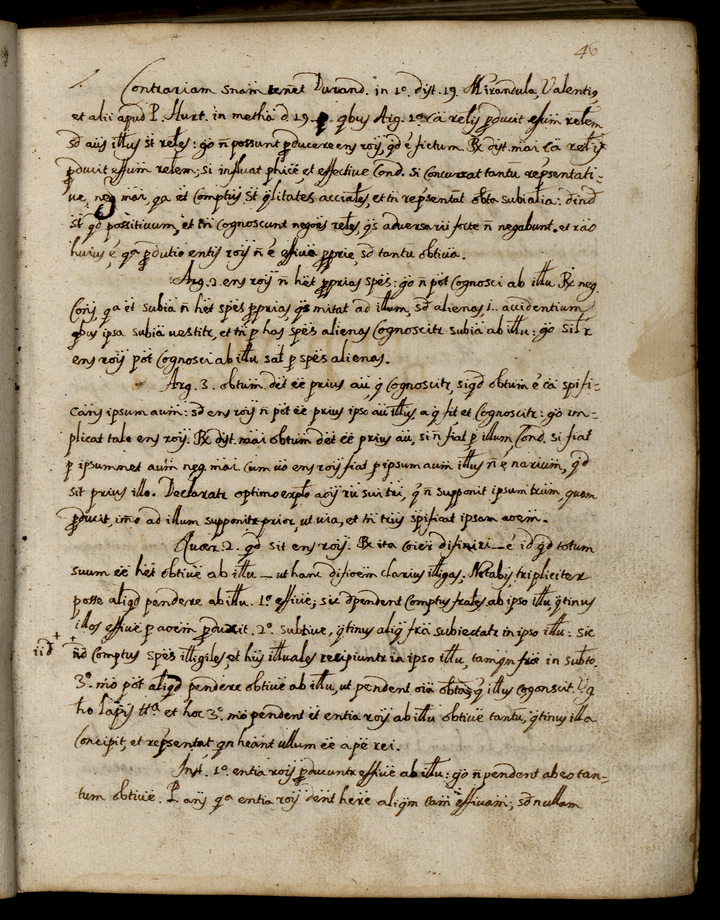 46
Contrariam snam tenet Durand. in 1º. dist. 19. Mirandula, Valentia,
et alii apud P. Hurt. in metha d 19. qbus Arg. 1º ca relis pducit esum relem
sd aus illus st reles: go ñ possunt pducere ens roij, qd é fictum. Rx dist. mai ca relis
pducit effum relem; si influat phice, et effective Cond. si concurrat tantu repsentati-
ve, neg mai, qa et comptus st qlitates acciales, et tñ repsentat obta subialia: dind
st qd possitivum, et tñ cognoscunt negoes reles, qs adversarii forte ñ negabunt. et rao
huius é, qa pdutio entis roij ñ é effiva pprie, sd tantu obtiva.
Arg. 2. ens roij ñ het pprias spes: go ñ pot cognosci ab illu. Rx neg.
Cons, qa et subia ñ het spes pprias, qs mitat ad illum, sd alienas i.. accidentium,
qbus ipsa subia vestitr, et tñ p has spes alienas cognoscitr subia ab illu: go silr
ens roij pot cognosci ab illu sal p spes alienas.
Arg. 3. obtum det ee prius au, q cognoscitr, siqd obtum é ca spifi-
cans ipsum aum: sd ens roij ñ pot ee prius ipso au illus, a q fit et cognoscitr: go im-
plicat tale ens roij. Rx dist. mai obtum det ee prius au, si ñ fiat p illum, Cond. si fiat
p ipsummet aum neg. mai. Cum vo ens roij fiat p ipsum aum illus ñ é narium, qd
sit prius illo. Declaratr optimo explo aoij vu sui tri, q ñ supponit ipsum trum, quem
pducit, imo ad illum supponitr prior, ut via, et tñ trus spificat ipsam aoem.
Quær. 2. qd sit ens roij. Rx ita coier difiniri _ é id qd totum
suum ee het obtive ab illu _ ut hanc difioem clarius illigas. Notabis tripliciter
posse aliqd pendere ab illu. 1º. effive; sic dpendent comptus frales ab ipso illu, qtinus
illos effive p aoem pduxit. 2º. subtive, qtinus aliq fra subiectatr in ipso illu: sic
iid ñd comptus spes illigiles, et hus illuales recipiuntr in ipso illu, tamqm fræ in subto.
3º. mo pot aliqd pendere obtive ab illu, ut pendent oia obta, q illu cognoscit. Vg
ho lapis ttª. et hoc 3º. mo pendent et entia roij ab illu obtive tantu, qtinus illa
concipit, et repsentat qn heant ullum ee a pe rei.
Inst. 1º. entia roij pducuntr effive ab illu: go ñ pendent ab eo tan-
tum obtive. P. ans qa entia roij dent here aliqm cam effivam; sd nullam